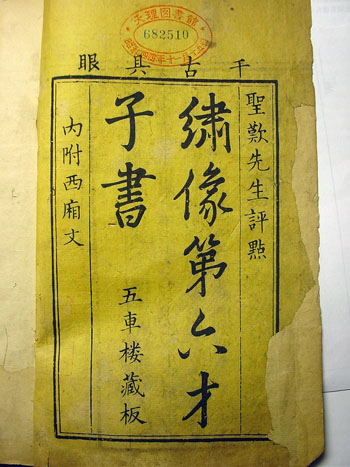 天理图書館
682510
千古具眼
聖歎先生評點
繡像第六才
子書
五車楼藏板
內附西廂文